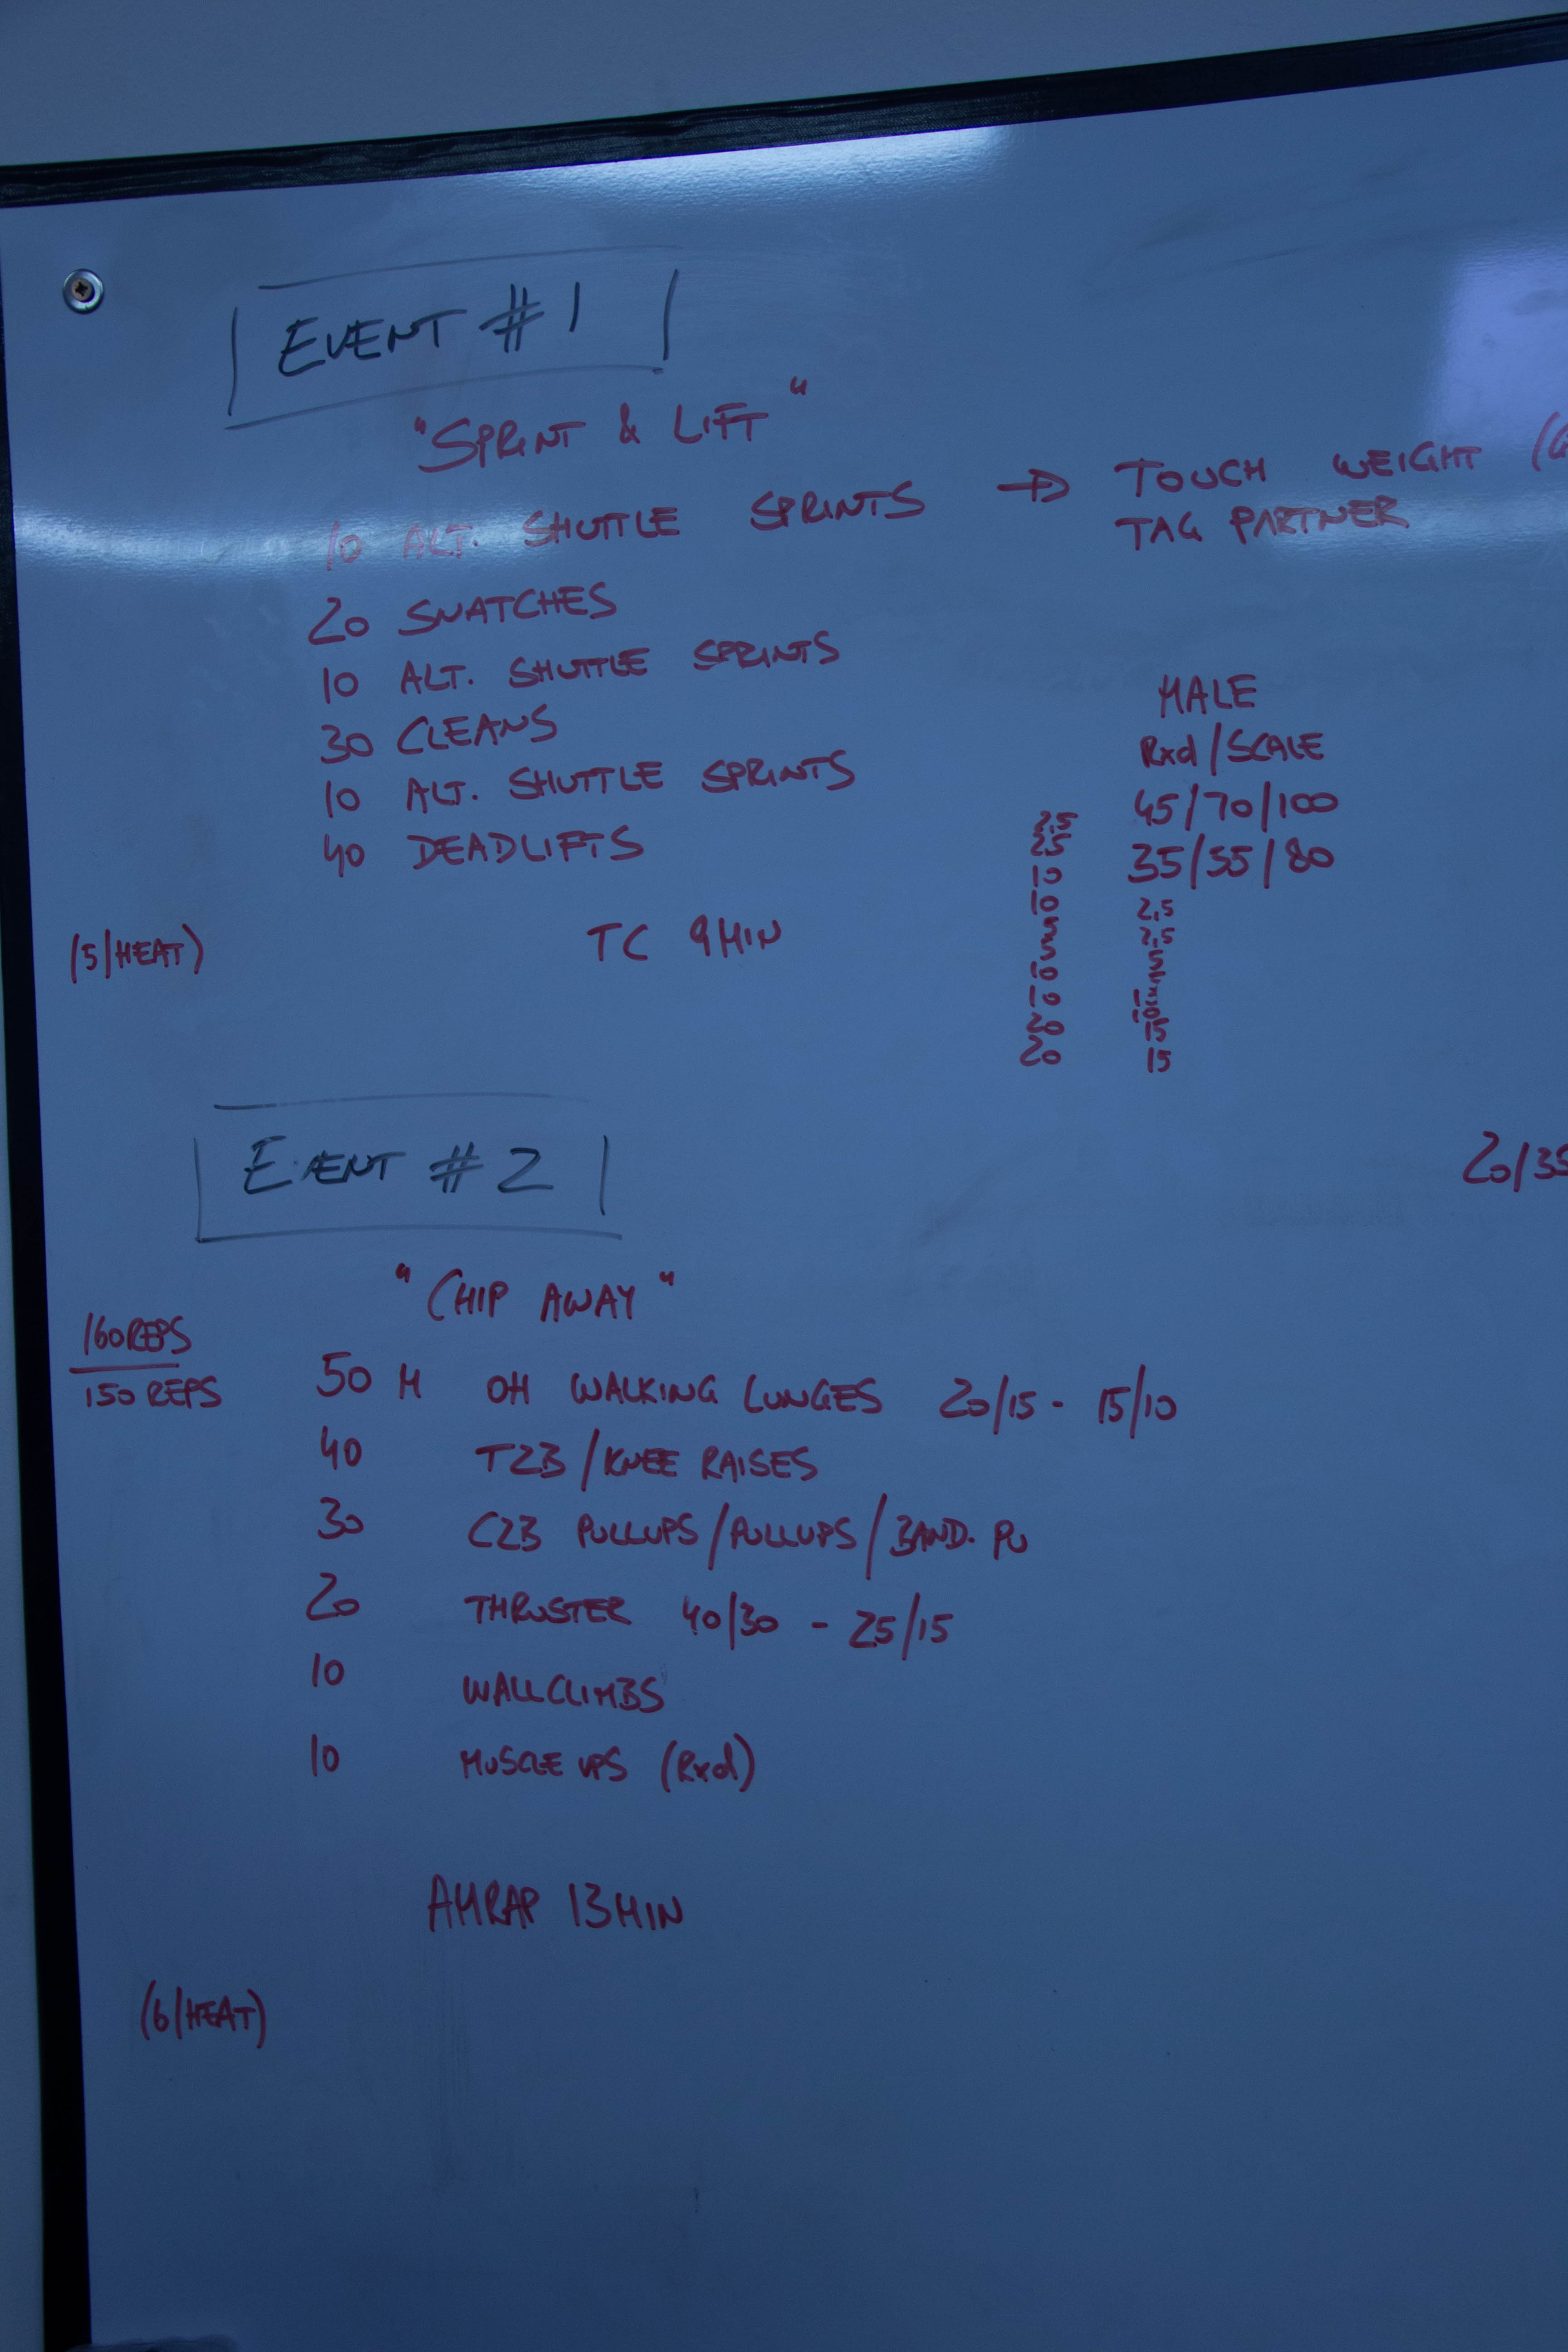 EVENT #1
"SPRINT & LIFT"
10 ALT. SHUTTLE SPRINTS → TOUCH WEIGHT
TAG PARTNER
20 SNATCHES
10 ALT. SHUTTLE SPRINTS
30 CLEANS
10 ALT. SHUTTLE SPRINTS
40 DEADLIFTS
MALE
Rxd/SCALE
45/70/100
35/55/80
2,5
2,5
10
10
5
5
10
10
20
20
2,5
2,5
5
5
10
15
15
TC 9MIN
(5/HEAT)
EVENT #2
20/35
"CHIP AWAY"
160 REPS
150 REPS
50 M OH WALKING LUNGES 20/15 - 15/10
40 T2B/KNEE RAISES
30 C2B PULLUPS/PULLUPS/BAND. PU
20 THRUSTER 40/30 - 25/15
10 WALLCLIMBS
10 MUSCLE UPS (Rxd)
AMRAP 13MIN
(6/HEAT)